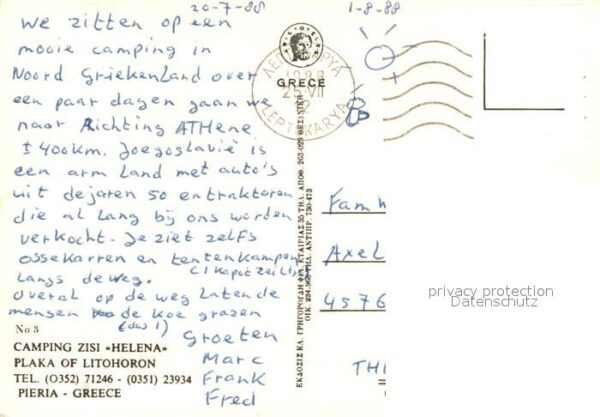 20-7-88
1-8-88
We zitten op een
mooie camping in
Noord Griekenland over
een paar dagen gaan we
naar Richting ATHene
± 400km. Joegoslavië is
een arm land met auto's
uit dejaren 50 en traktoren
die al Lang bij ons worden
verkocht. Je ziet zelfs
ossekarren en tentenkampen
Langs de weg.
overal op de weg Laten de
mensen de koe grazen
(dus 1)
Groeten
Marc
Frank
Fred
No 3
CAMPING ZISI «HELENA»
PLAKA OF LITOHORON
TEL. (O352) 71246 - (0351) 23934
PIERIA - GREECE
GRECE
ΛΕΠΤΟΚΑΡΥΑ
LEPTOKARYA
ΕΚΔΟΣΙΣ ΚΛ. ΓΡΗΓΟΡΟΥΔΗ ΦΙΛ. ΕΤΑΙΡΙΑΣ 35 ΤΗΛ. ΑΠΟΘ. 263-029 ΘΕΣ/ΝΙΚΗ
ΟΙΚ. ΤΗΛ. ΑΝΤΙΠΡ. 730-473
Fam
Axel
4576
TH
privacy protection
Datenschutz